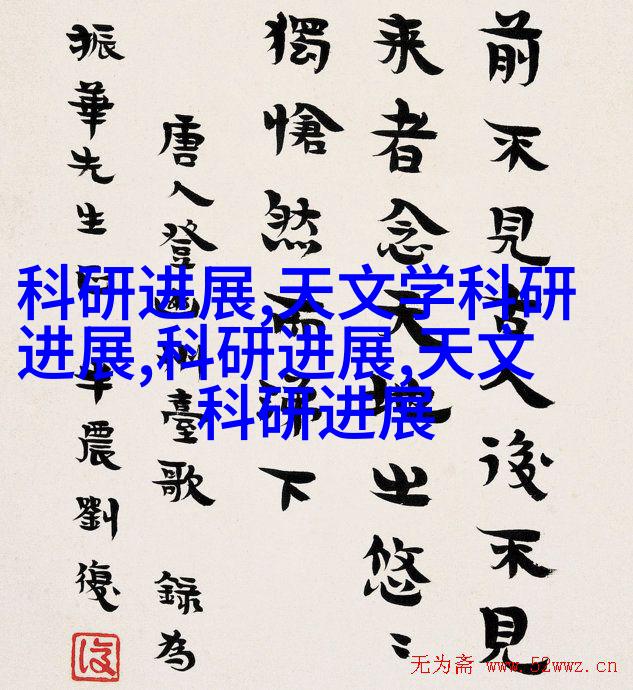 前不見古人後不見
来者念天地之悠〻
獨愴然而涕下
唐人登幽州臺歌 錄為
振華先生 半農劉復
科研进展,天文学科研
进展,科研进展,天文
科研进展
无为斋 www.52wwz.cn